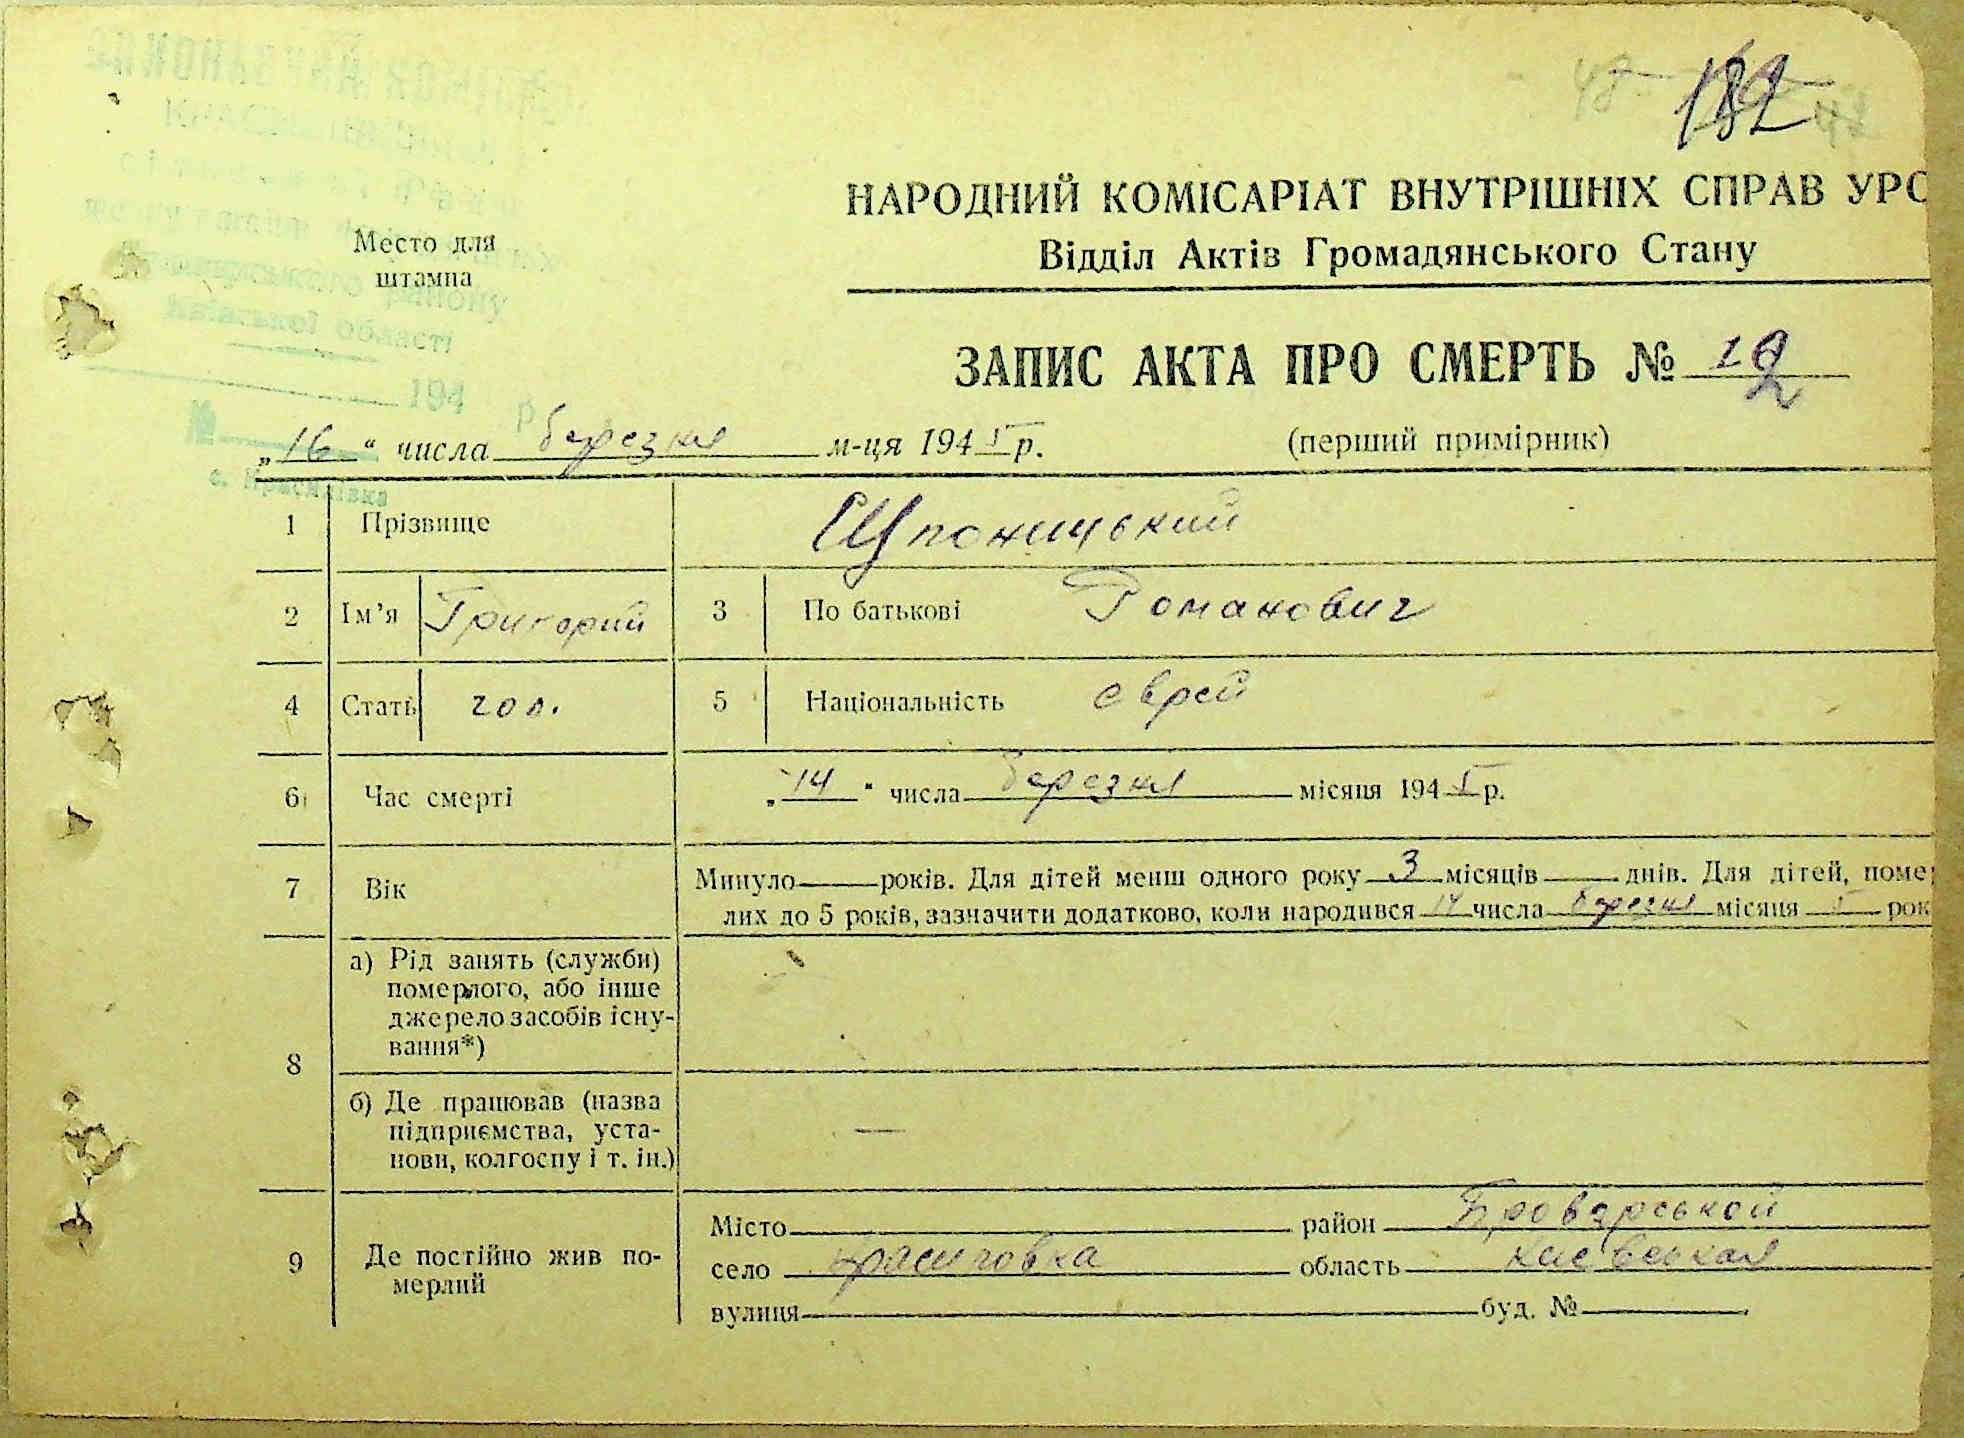 182
НАРОДНИЙ КОМІСАРІАТ ВНУТРІШНІХ СПРАВ УРС
Відділ Актів Громадянського Стану
Место для
штампа
району
Київської області
194 р
№
с. Красилівка
ЗАПИС АКТА ПРО СМЕРТЬ №
(перший примірник)
„16“ числа березня м-ця 194 1 р.
1 Прізвище Щпоницький
2 Ім’я Григорий 3 По батькові Романович
4 Стать чол. 5 Національність єврей
6 Час смерті „14“ числа березня місяця 194 1 р.
7 Вік Минуло років. Для дітей менш одного року 3 місяців днів. Для дітей, поме
лих до 5 років, зазначити додатково, коли народився 14 числа березня місяця 1 рок
8 а) Рід занять (служби)
померлого, або інше
джерело засобів існу-
вання*)
б) Де працював (назва
підприємства, уста-
нови, колгоспу і т. ін.) —
9 Де постійно жив по-
мерлий
Місто район Броварськой
село Красиловка область Київськая
вулиця буд. №